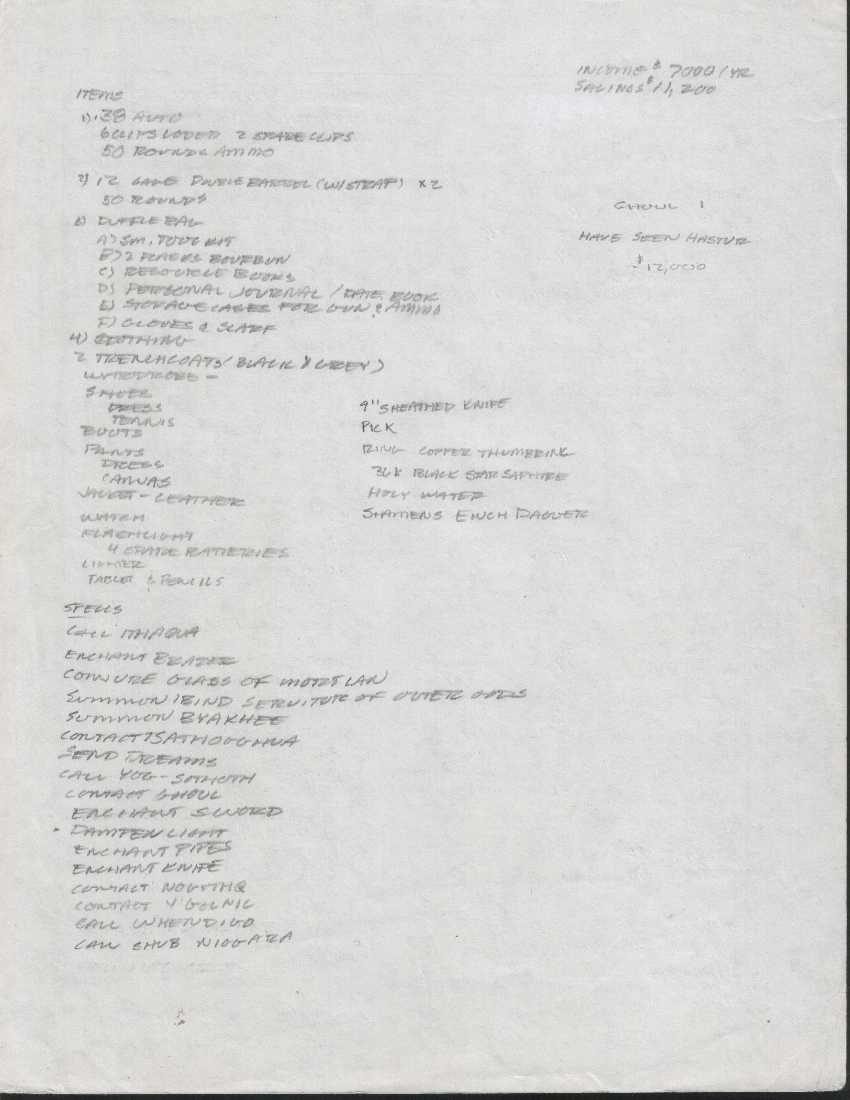 INCOME $ 7000/YR
SAVINGS $11,200
ITEMS
1) .38 AUTO
6 CLIPS LODED 2 SPARE CLIPS
50 ROUNDS AMMO
2) 12 GAGE DOUBLE BARREL (W/STRAP) x2
50 ROUNDS
GHOUL 1
3) DUFFLE BAG
HAVE SEEN HASTUR
A) SM. TOOL KIT
B) 2 FLASKS BOURBUN
$12,000
C) RESOURCE BOOKS
D) PERSONAL JOURNAL / DATE BOOK
E) STORAGE CASES FOR GUN & AMMO
F) GLOVES & SCARF
4) CLOTHING
2 TRENCHCOATS (BLACK & GREY)
WARDROBE -
SHOES
DRESS
TENNIS
BOOTS
PANTS
DRESS
CANVAS
JACKET - LEATHER
WATCH
FLASHLIGHT
4 SPARE BATTERIES
LIGHTER
TABLET & PENCILS
9" SHEATHED KNIFE
PICK
RING COPPER THUMBRING
36K BLACK STAR SAPHIRE
HOLY WATER
SHAMENS ENCH DAGGER
SPELLS
CALL ITHAQUA
ENCHANT BRAZER
CONJURE GLASS OF MORTLAN
SUMMON/BIND SERVITOR OF OUTER GODS
SUMMON BYAKHEE
CONTACT TSATHOGGHUA
SEND DREAMS
CALL YOG-SOTHOTH
CONTACT GHOUL
ENCHANT SWORD
DAMPEN LIGHT
ENCHANT PIPES
ENCHANT KNIFE
CONTACT NOGOTHQ
CONTACT Y'GOLNIC
CALL WHENDIGO
CALL SHUB NIOGARA